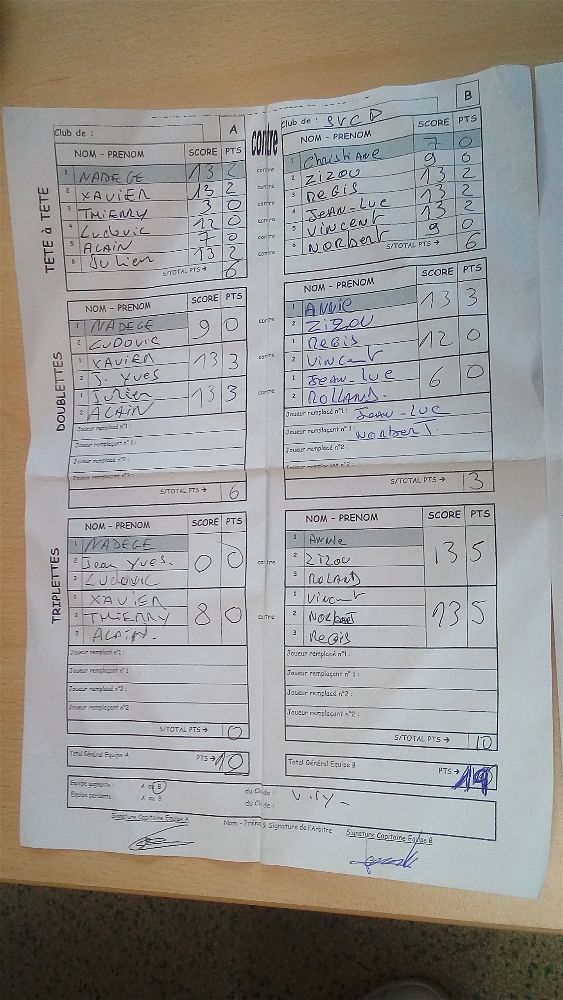 Club de :
A
contre
Club de : SVCD
B
TETE à TETE
NOM - PRENOM SCORE PTS
1 NADEGE 13 2
2 XAVIER 13 2
3 THIERRY 3 0
4 Ludovic 12 0
5 ALAIN 7 0
6 Julien 13 2
S/TOTAL PTS → 6
contre
contre
contre
contre
contre
contre
NOM - PRENOM SCORE PTS
1 Christiane 7 0
2 ZIZOU 9 0
3 REGIS 13 2
4 JEAN-LUC 13 2
5 VINCENT 13 2
6 Norbert 9 0
S/TOTAL PTS → 6
DOUBLETTES
NOM - PRENOM SCORE PTS
1 NADEGE 9 0
2 LUDOVIC
1 XAVIER 13 3
2 J. YVES
1 Julien 13 3
2 ALAIN
Joueur remplacé n°1 :
Joueur remplaçant n°1 :
Joueur remplacé n°2 :
Joueur remplaçant n°2 :
S/TOTAL PTS → 6
contre
contre
contre
NOM - PRENOM SCORE PTS
1 ANNIE 13 3
2 ZIZOU
1 REGIS 12 0
2 Vincent
1 JEAN-LUC 6 0
2 ROLLAND.
Joueur remplacé n°1 : JEAN-LUC
Joueur remplaçant n°1 : NORBERT.
Joueur remplacé n°2 :
Joueur remplaçant n°2 :
S/TOTAL PTS → 3
TRIPLETTES
NOM - PRENOM SCORE PTS
1 NADEGE 0 0
2 Jean YVES.
3 LUDOVIC
1 XAVIER 8 0
2 THIERRY
3 ALAIN.
Joueur remplacé n°1 :
Joueur remplaçant n°1 :
Joueur remplacé n°2 :
Joueur remplaçant n°2 :
S/TOTAL PTS → 0
contre
contre
NOM - PRENOM SCORE PTS
1 Annie 13 5
2 ZIZOU
3 ROLAND
1 Vincent 13 5
2 NORBERT
3 REGIS
Joueur remplacé n°1 :
Joueur remplaçant n°1 :
Joueur remplacé n°2 :
Joueur remplaçant n°2 :
S/TOTAL PTS → 10
Total Général Equipe A PTS → 10
Total Général Equipe B PTS → 19
Equipe gagnante : A ou B du Club de :
Equipe perdante : A ou B du Club de :
Signature Capitaine Equipe A
Nom - Prénom & Signature de l'Arbitre
Signature Capitaine Equipe B